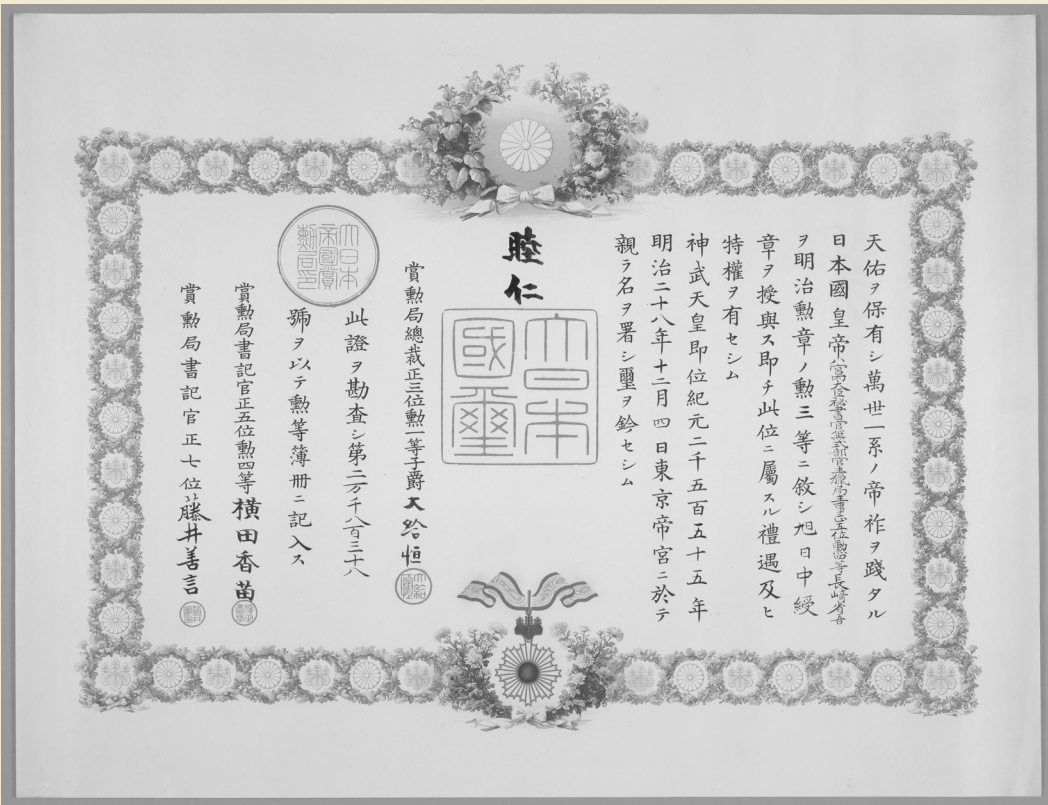 天佑ヲ保有シ萬世一系ノ帝祚ヲ踐タル
日本國皇帝宮內大臣秘書官兼式部官主獵局主事正五位勳四等長崎省吾
ヲ明治勲章ノ勲三等ニ敘シ旭日中綬
章ヲ授與ス即チ此位ニ屬スル禮遇及ヒ
特權ヲ有セシム
神武天皇即位紀元二千五百五十五年
明治二十八年十二月四日東京帝宮ニ於テ
親ラ名ヲ署シ璽ヲ鈐セシム
睦仁
大日本國璽
賞勲局總裁正三位勲一等子爵大給恒
大日本帝國賞勲局印
此證ヲ勘査シ第二万千八百三十八
號ヲ以テ勲等簿冊ニ記入ス
賞勲局書記官正五位勲四等横田香苗
賞勲局書記官正七位藤井善言